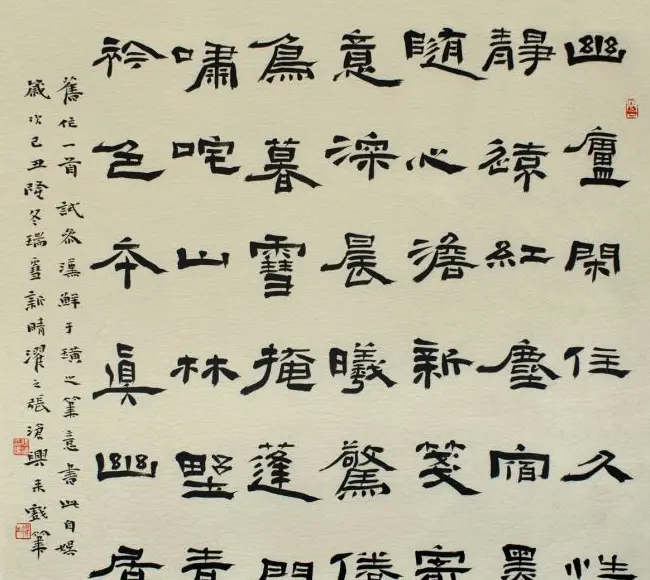 幽廬閑住久性
靜遠紅塵宿墨
隨心澹新箋寄
意深晨曦驚倦
鳥暮雪掩蓬門
嘯咤山林野青
衿色本眞幽居
舊作一首試參漢鮮于璜之筆意書此自娛
歲次己丑隆冬瑞雪新晴濯之張滄興來戲筆